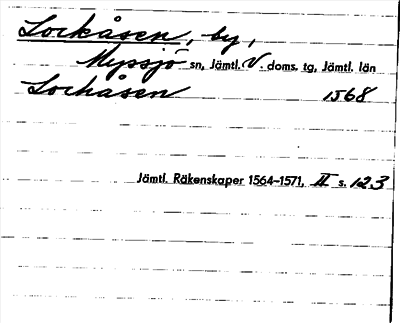 Lockåsen, by,
Myssjö sn, Jämtl. V. doms. tg, Jämtl. län
Lochåsen 1568
Jämtl. Räkenskaper 1564-1571, II s. 123